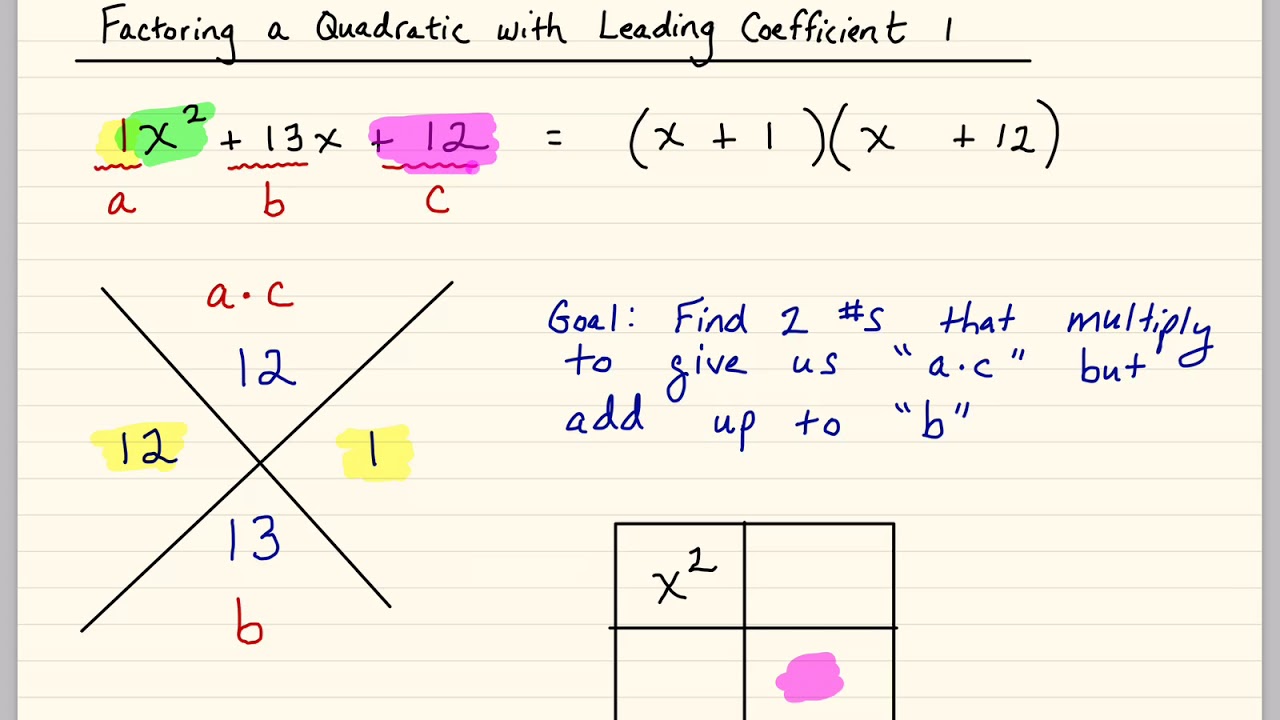 Factoring a Quadratic with Leading Coefficient 1
1x² + 13x + 12 = (x + 1)(x + 12)
a b c
a·c
12
12 1
13
b
Goal: Find 2 #s that multiply
to give us "a·c" but
add up to "b"
x²